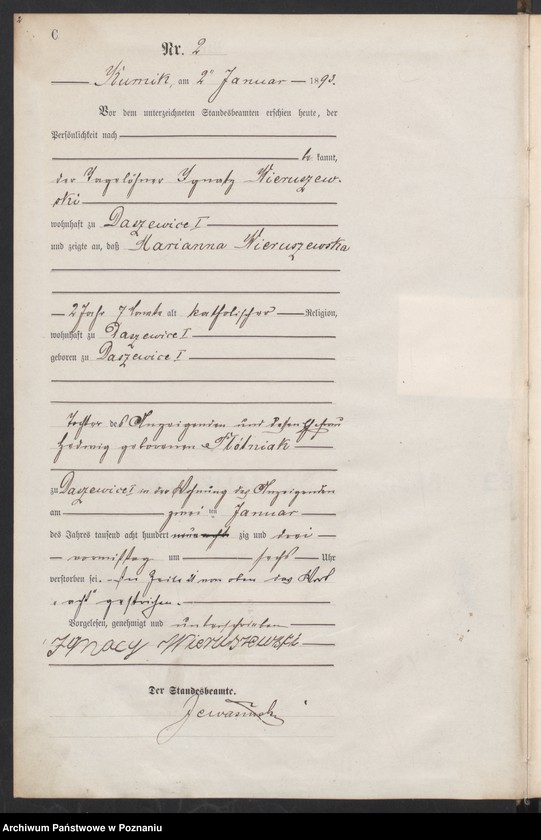 C
Nr. 2
Kurnik, am 2ten Januar 1893.
Vor dem unterzeichneten Standesbeamten erschien heute, der
Persönlichkeit nach
be kannt,
der Tagelöhner Ignatz Wieruszew-
ski
wohnhaft zu Daszewice I
und zeigte an, daß Marianna Wieruszewska
2 Jahr 7 Monate alt katholischer Religion,
wohnhaft zu Daszewice I
geboren zu Daszewice I
Tochter des Anzeigenden und dessen Ehefrau
Hedwig geborenen Plótniak
zu Daszewice I in der Wohnung des Anzeigenden
am zwei ten Januar
des Jahres tausend acht hundert neun zig und drei
vormittag um sechs Uhr
verstorben sei. von oben das Wort
"acht" gestrichen.
Vorgelesen, genehmigt und unterschrieben
Ignacy Wieruszewski
Der Standesbeamte.
Archiwum Państwowe w Poznaniu